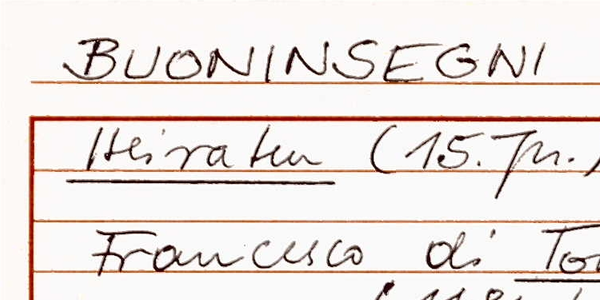 BUONINSEGNI
Heiraten (15. Jh.)
Francesco di To